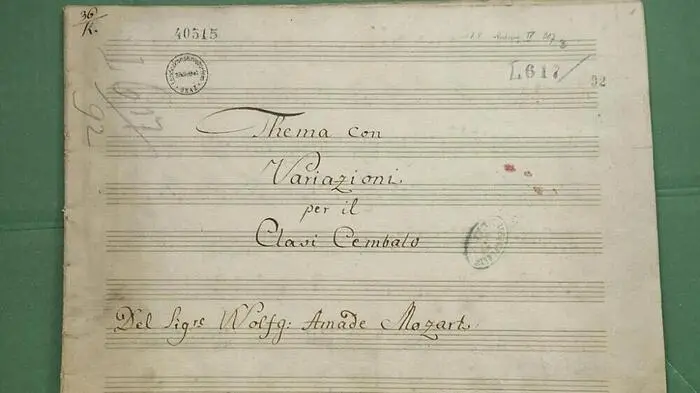 36/K.
40515
L617/92
L617/92
Thema con
Variazioni
per il
Clavi Cembalo
Del Sigre Wolfg: Amade Mozart.